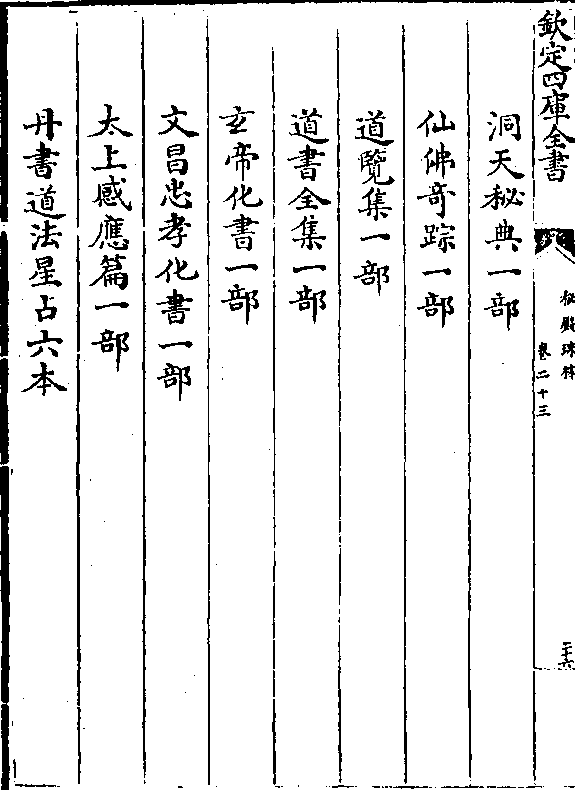 欽定四庫全書
秘殿珠林
卷二十三
二十六
洞天秘典一部
仙佛奇踪一部
道覽集一部
道書全集一部
玄帝化書一部
文昌忠孝化書一部
太上感應篇一部
丹書道法星占六本